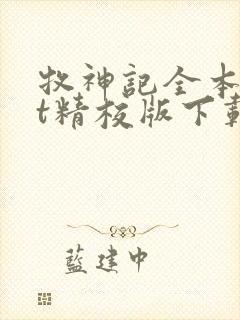 牧神記全本
t精校版下載
藍建中